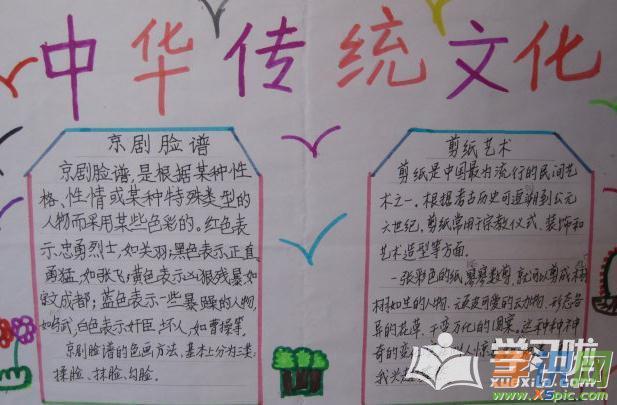 中华传统文化
京剧脸谱
京剧脸谱,是根据某种性
格、性情或某种特殊类型的
人物而采用某些色彩的。红色表
示忠勇烈士,如关羽;黑色表示正直
勇猛,如张飞;黄色表示凶狠残暴如
宇文成都;蓝色表示一些暴躁的人物,
白色表示奸臣、坏人,如曹操等。
京剧脸谱的色画方法,基本上分为三类:
揉脸、抹脸、勾脸。
剪纸艺术
剪纸是中国最为流行的民间艺
术之一。根据考古历史可追溯到公元
六世纪,剪纸常用于宗教仪式、装饰和
艺术造型等方面。
一张彩色的纸
的人物、可爱的动物、形态各
异的花草、千变万化的图案。这种种神
奇的
学习啦
xuexila.com
XSpic.com